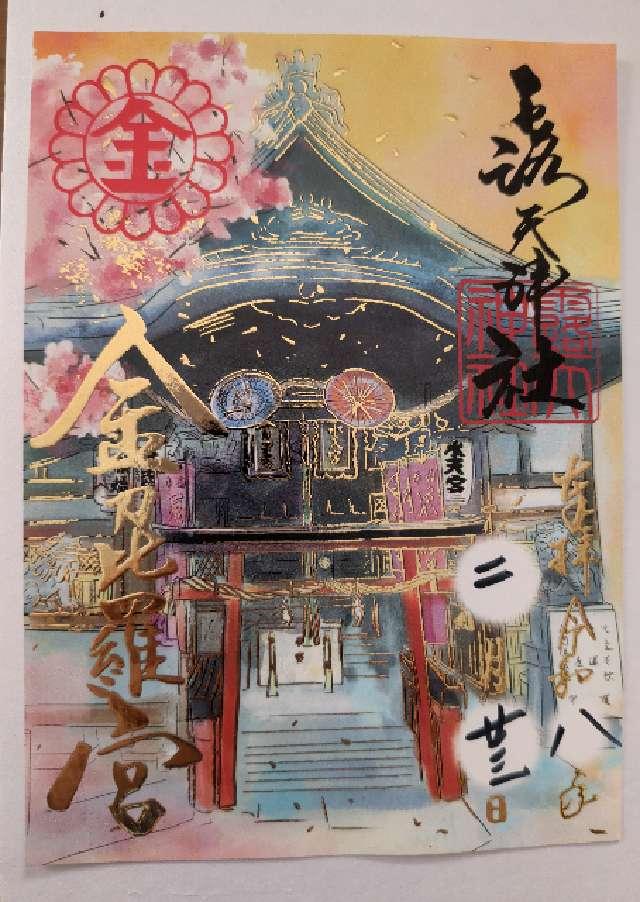 露天神社
露天神社
奉拝 令和八年
二月廿三日
水天宮
金
金刀比羅宮